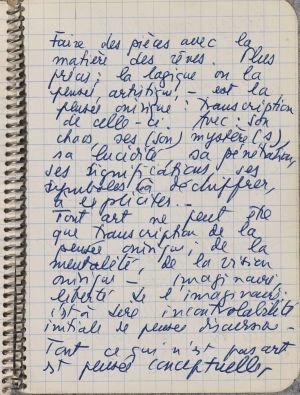 Faire des pièces avec la
matière des rêves. Plus
précis; la logique ou la
pensée artistique - est la
pensée onirique: transcription
de celle-ci. Avec son
chaos, ses (son) mystère(s),
sa lucidité, sa pénétration,
ses significations, ses
symboles à déchiffrer,
à expliciter. -
Tout art ne peut être
que transcription de la
pensée onirique; de la
mentalité, de la vision
onirique - imaginaire
liberté de l'imaginaire
c'est à dire incontrolabilité
initiale de pensée discursive -
Tout ce qui n'est pas art
est pensée conceptuelle,